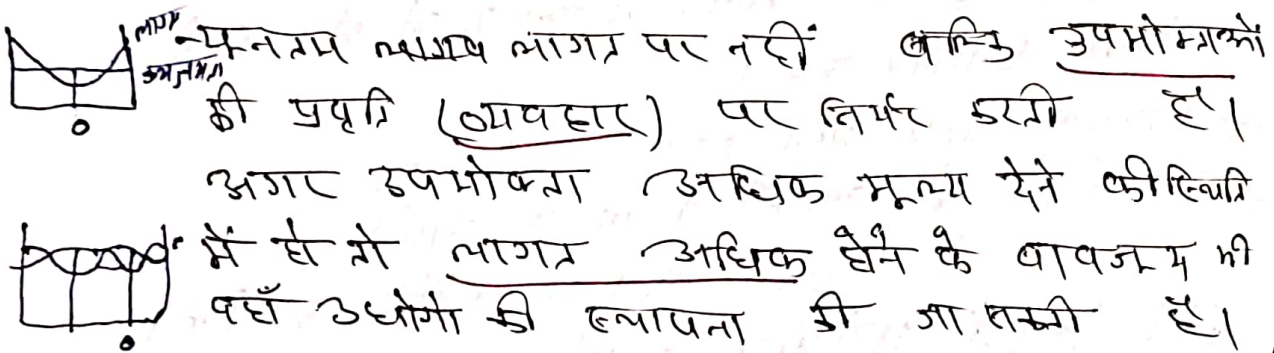 लागत
न्यूनतम लागत पर नहीं बल्कि उपभोक्ताओं
की प्रवृति (व्यवहार) पर निर्भर करती है।
अगर उपभोक्ता अधिक मूल्य देने की स्थिति
में हो तो लागत अधिक होने के बावजूद भी
वहाँ उद्योगो की स्थापना की जा सकती है।
0
0